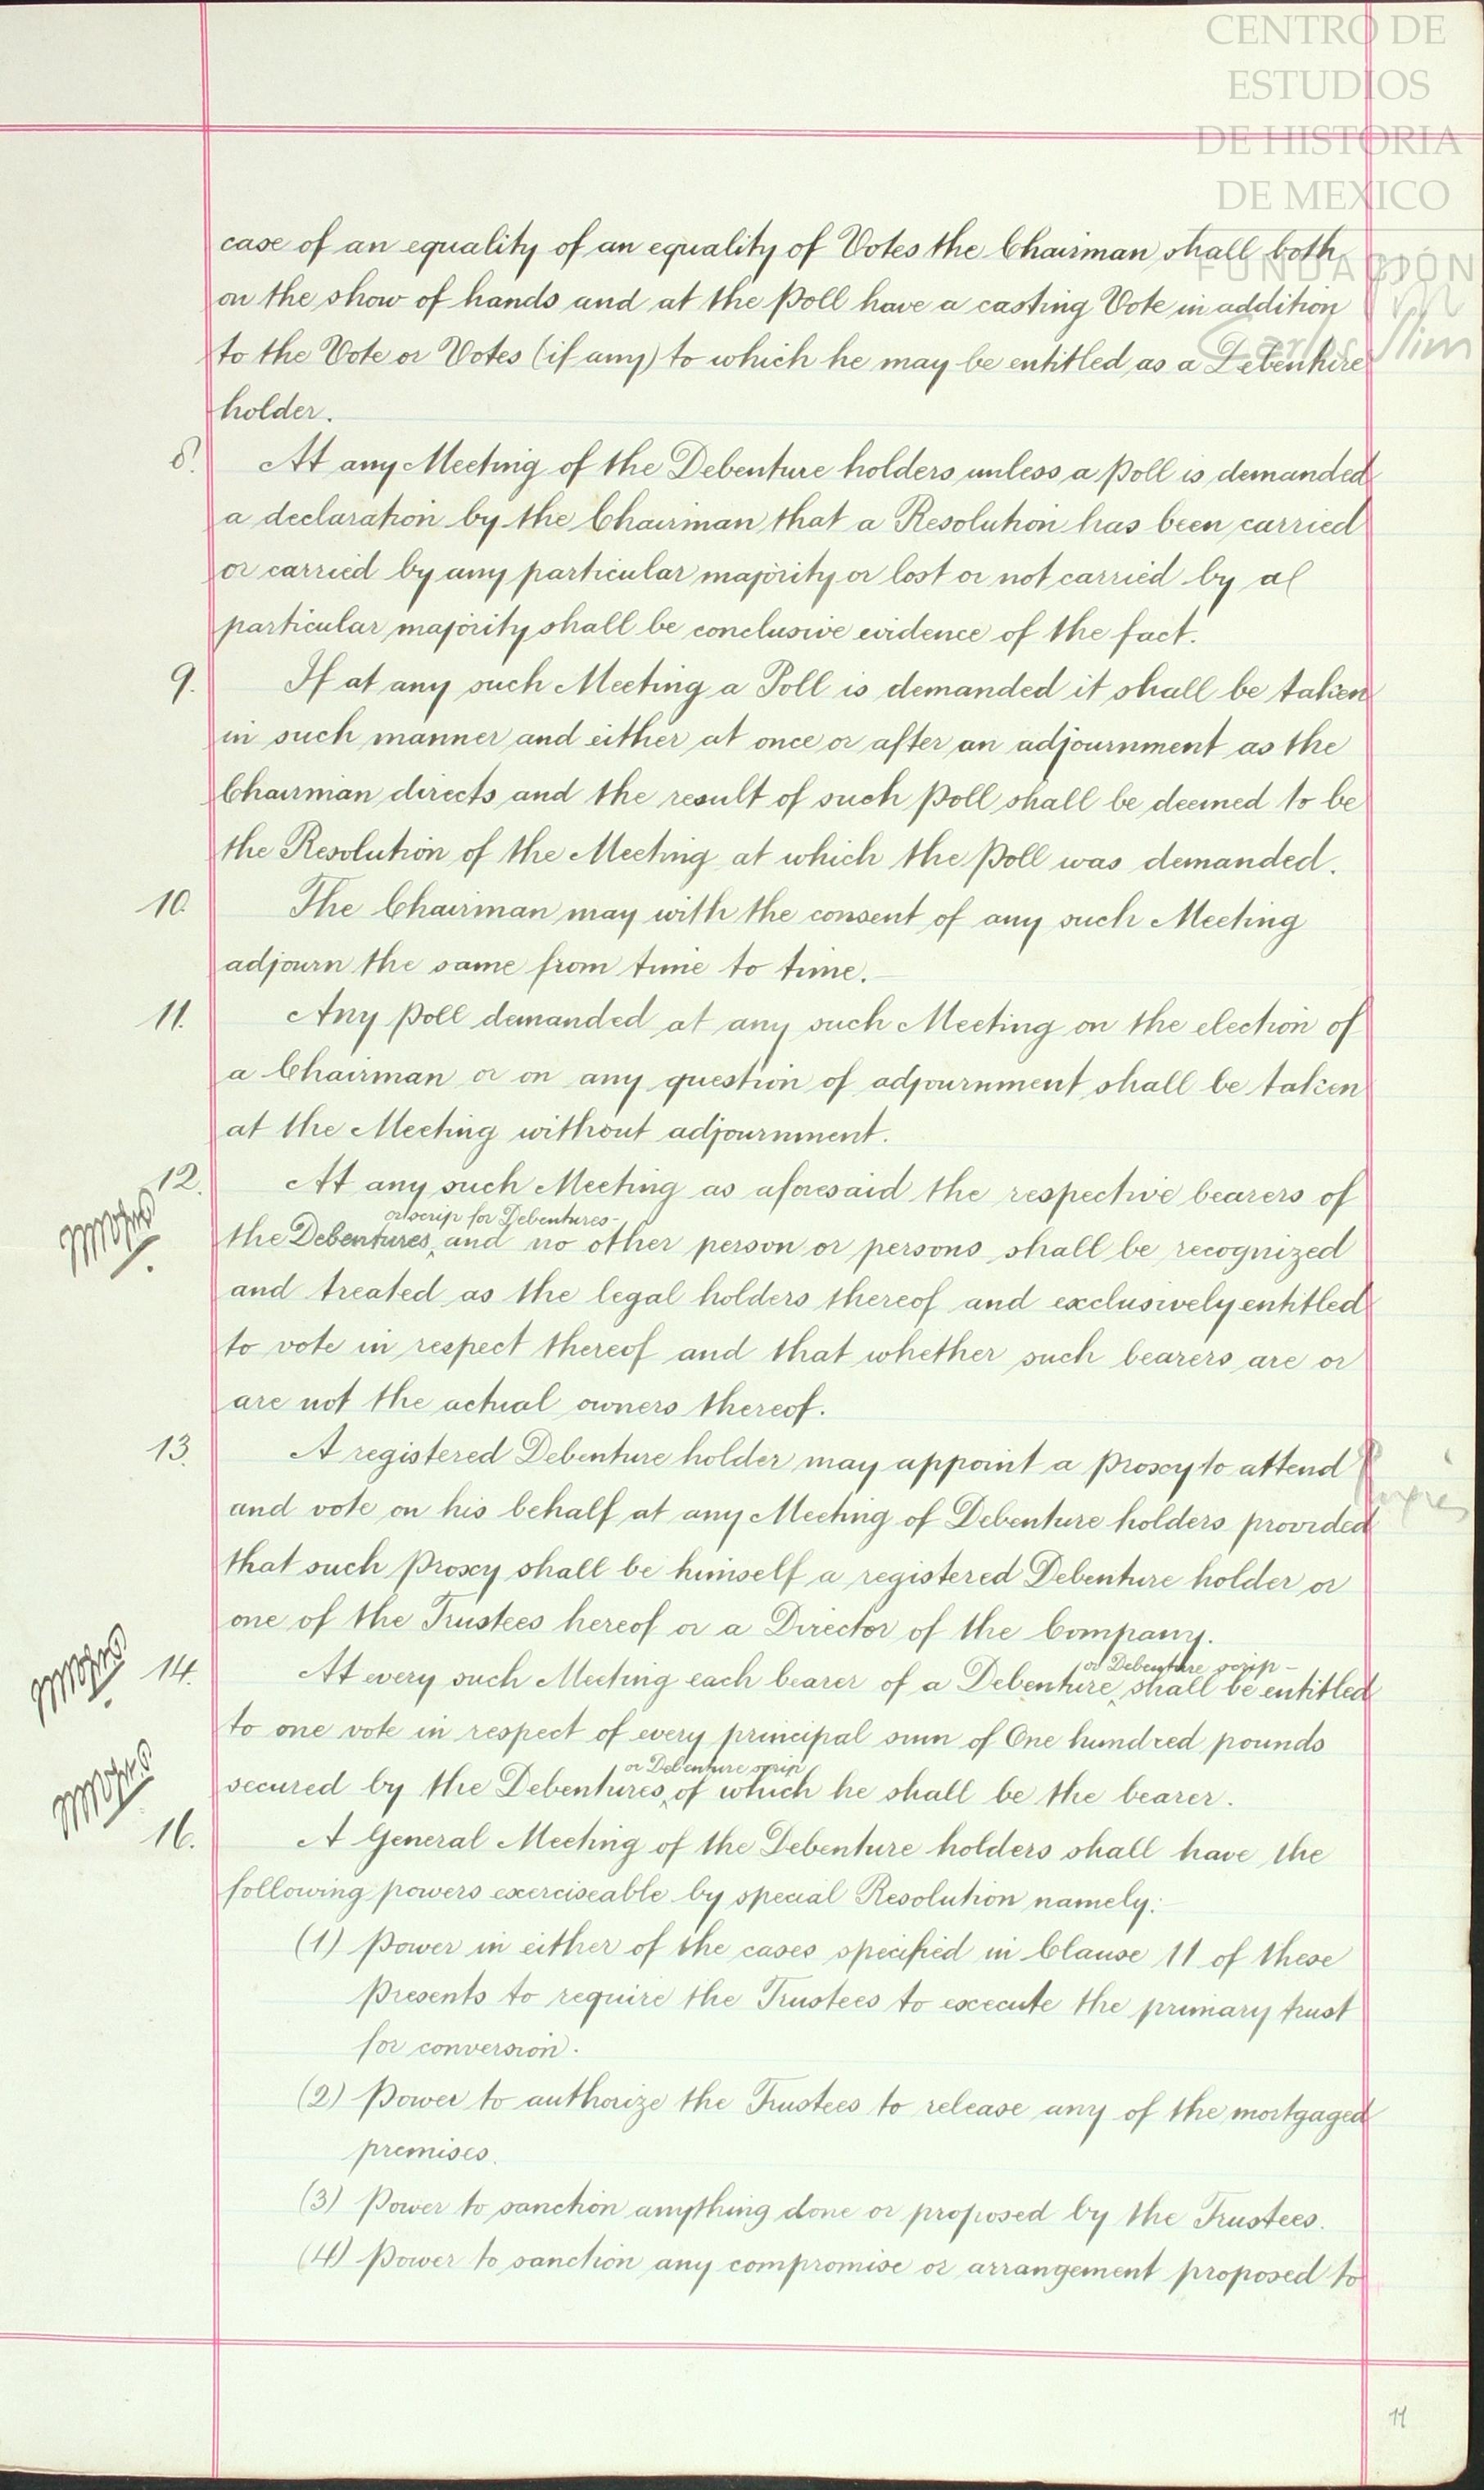 CENTRO DE
ESTUDIOS
DE HISTORIA
DE MEXICO
FUNDACIÓN
Carlos Slim
case of an equality of an equality of Votes the Chairman shall both
on the show of hands and at the poll have a casting Vote in addition
to the Vote or Votes (if any) to which he may be entitled as a Debenture
holder.
8. At any Meeting of the Debenture holders unless a poll is demanded
a declaration by the Chairman that a Resolution has been carried
or carried by any particular majority or lost or not carried by a
particular majority shall be conclusive evidence of the fact.
9. If at any such Meeting a Poll is demanded it shall be taken
in such manner and either at once or after an adjournment as the
Chairman directs and the result of such poll shall be deemed to be
the Resolution of the Meeting at which the poll was demanded.
10. The Chairman may with the consent of any such Meeting
adjourn the same from time to time.
11. Any poll demanded at any such Meeting on the election of
a Chairman or on any question of adjournment shall be taken
at the Meeting without adjournment.
12. At any such Meeting as aforesaid the respective bearers of
or scrip for Debentures
the Debentures and no other person or persons shall be recognized
and treated as the legal holders thereof and exclusively entitled
to vote in respect thereof and that whether such bearers are or
are not the actual owners thereof.
13. A registered Debenture holder may appoint a proxy to attend
and vote on his behalf at any Meeting of Debenture holders provided
that such proxy shall be himself a registered Debenture holder or
one of the Trustees hereof or a Director of the Company.
or Debenture scrip
14. At every such Meeting each bearer of a Debenture shall be entitled
to one vote in respect of every principal sum of One hundred pounds
or Debenture scrip
secured by the Debentures of which he shall be the bearer.
16. A General Meeting of the Debenture holders shall have the
following powers exerciseable by special Resolution namely:
(1) Power in either of the cases specified in Clause 11 of these
presents to require the Trustees to execute the primary trust
for conversion.
(2) Power to authorize the Trustees to release any of the mortgaged
premises.
(3) Power to sanction anything done or proposed by the Trustees.
(4) Power to sanction any compromise or arrangement proposed to
11